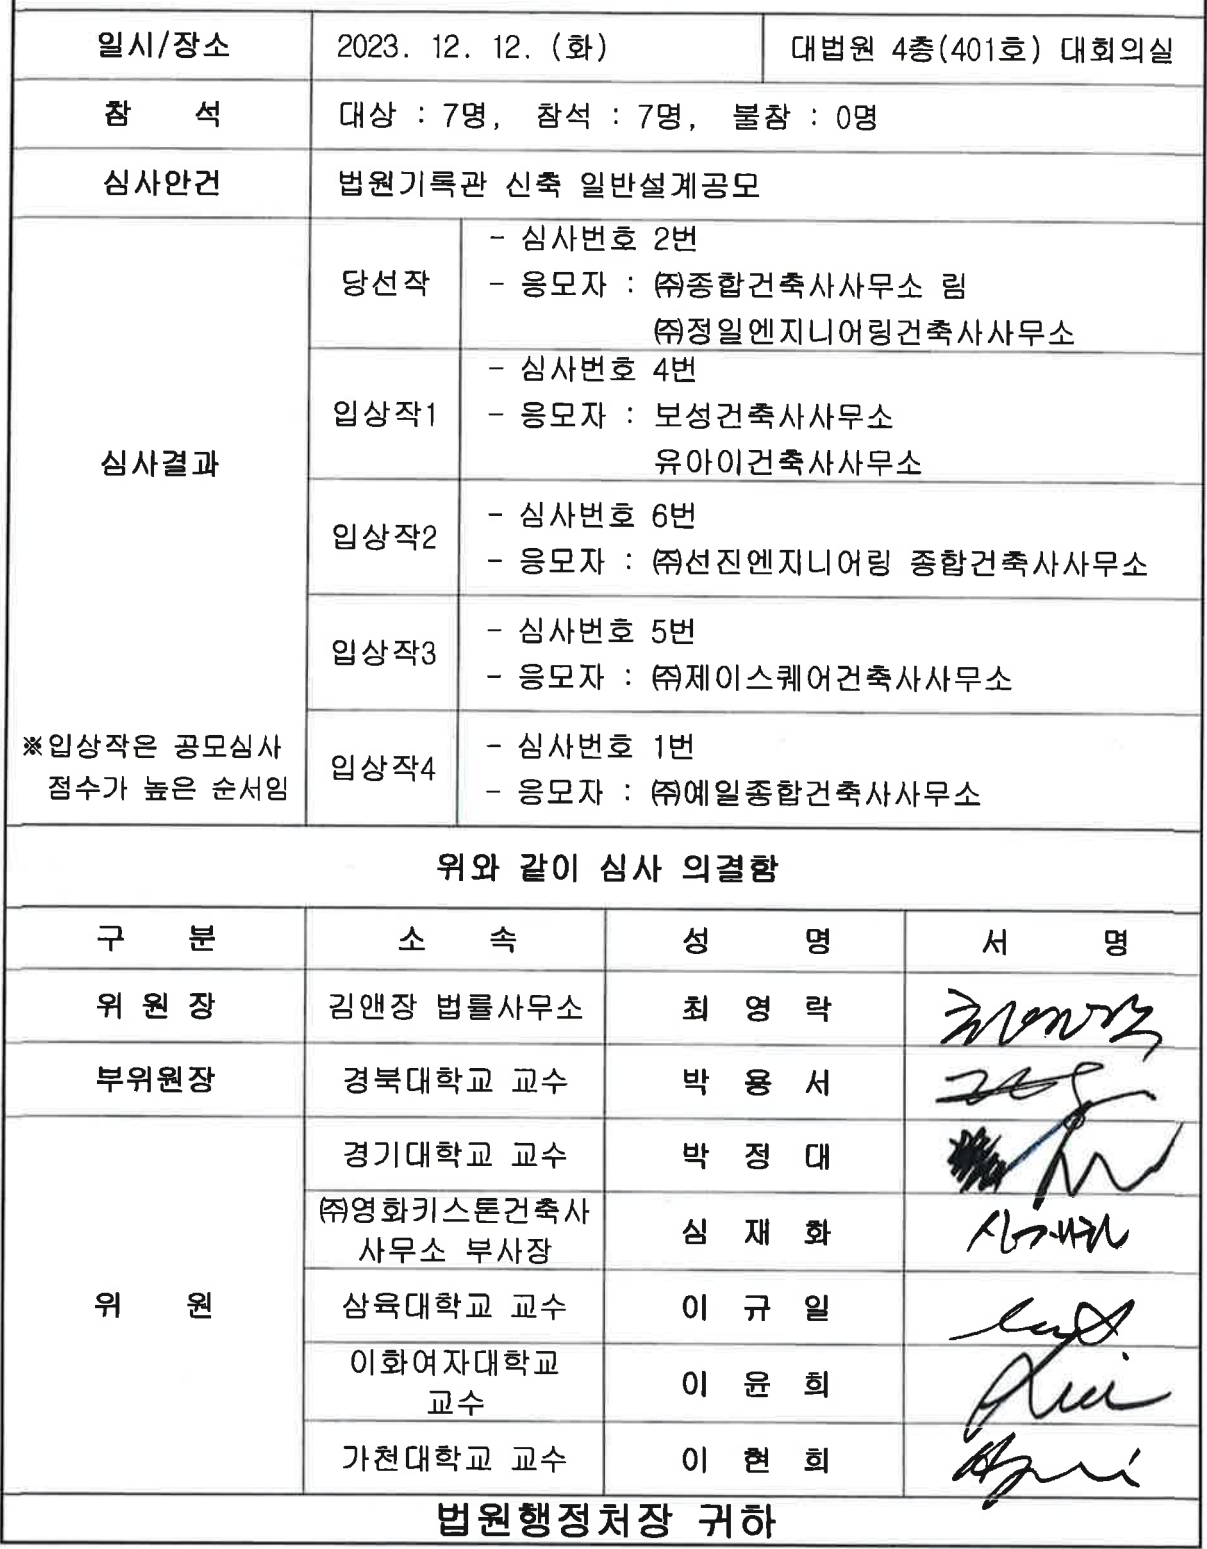 일시/장소 2023. 12. 12. (화) 대법원 4층(401호) 대회의실
참 석 대상 : 7명, 참석 : 7명, 불참 : 0명
심사안건 법원기록관 신축 일반설계공모
심사결과
※입상작은 공모심사
점수가 높은 순서임
당선작
- 심사번호 2번
- 응모자 : ㈜종합건축사사무소 림
㈜정일엔지니어링건축사사무소
입상작1
- 심사번호 4번
- 응모자 : 보성건축사사무소
유아이건축사사무소
입상작2
- 심사번호 6번
- 응모자 : ㈜선진엔지니어링 종합건축사사무소
입상작3
- 심사번호 5번
- 응모자 : ㈜제이스퀘어건축사사무소
입상작4
- 심사번호 1번
- 응모자 : ㈜예일종합건축사사무소
위와 같이 심사 의결함
구 분 소 속 성 명 서 명
위 원 장 김앤장 법률사무소 최 영 락
부위원장 경북대학교 교수 박 용 서
위 원
경기대학교 교수 박 정 대
㈜영화키스톤건축사
사무소 부사장
심 재 화
삼육대학교 교수 이 규 일
이화여자대학교
교수
이 윤 희
가천대학교 교수 이 현 희
법원행정처장 귀하